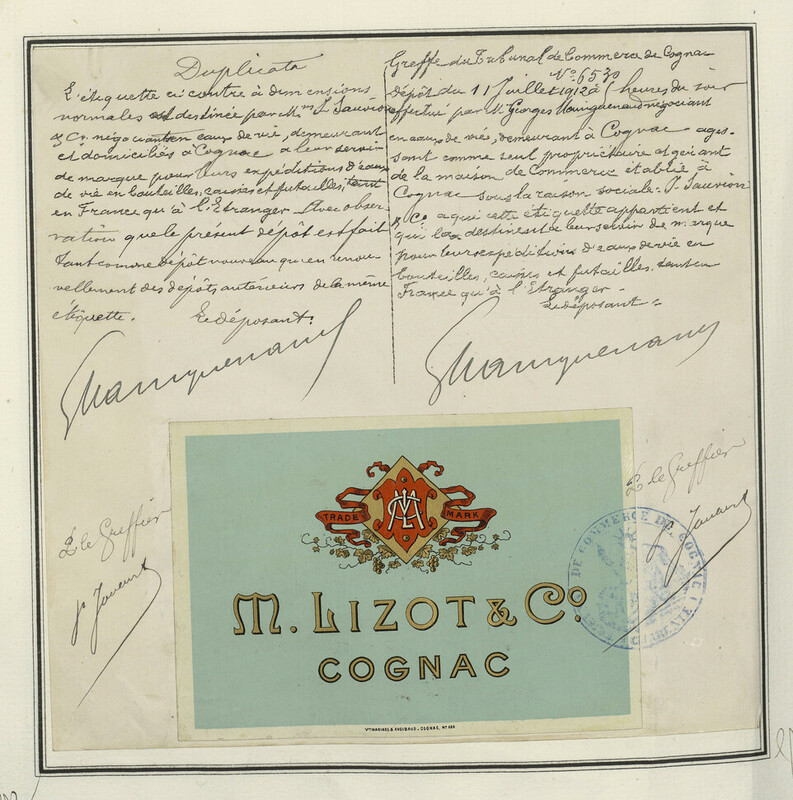 Duplicata
L'étiquette ci contre à dimensions
normales est destinée par M.rs J. Sauvion
& Co négociants en eaux de vie, demeurant
et domiciliés à Cognac à leur servir
de marque pour leurs expéditions d'eaux
de vie en bouteilles, caisses et futailles, tant
en France qu'à l'Etranger. Avec obser
vation que le présent dépôt est fait
tant comme dépôt nouveau qu'en renou
vellement des dépôts antérieurs de la même
étiquette. Le déposant:
Greffe du Tribunal de Commerce de Cognac
No 6530
Dépôt du 11 Juillet 1912 à heures du soir
effectué par M. Georges négociant
en eaux de vie, demeurant à Cognac agis-
sant comme seul propriétaire et gérant
de la maison de Commerce établie à
Cognac sous la raison sociale: J. Sauvion
& Co à qui cette étiquette appartient et
qui la destinent à leur servir de marque
pour leurs expéditions d'eaux de vie en
bouteilles, caisses et futailles, tant en
France qu'à l'Etranger -
Le déposant:
P. le Greffier
P. le Greffier
TRADE MARK
M. LIZOT & Co
COGNAC
DE COMMERCE DE COGNAC
CHARENTE
COGNAC, No